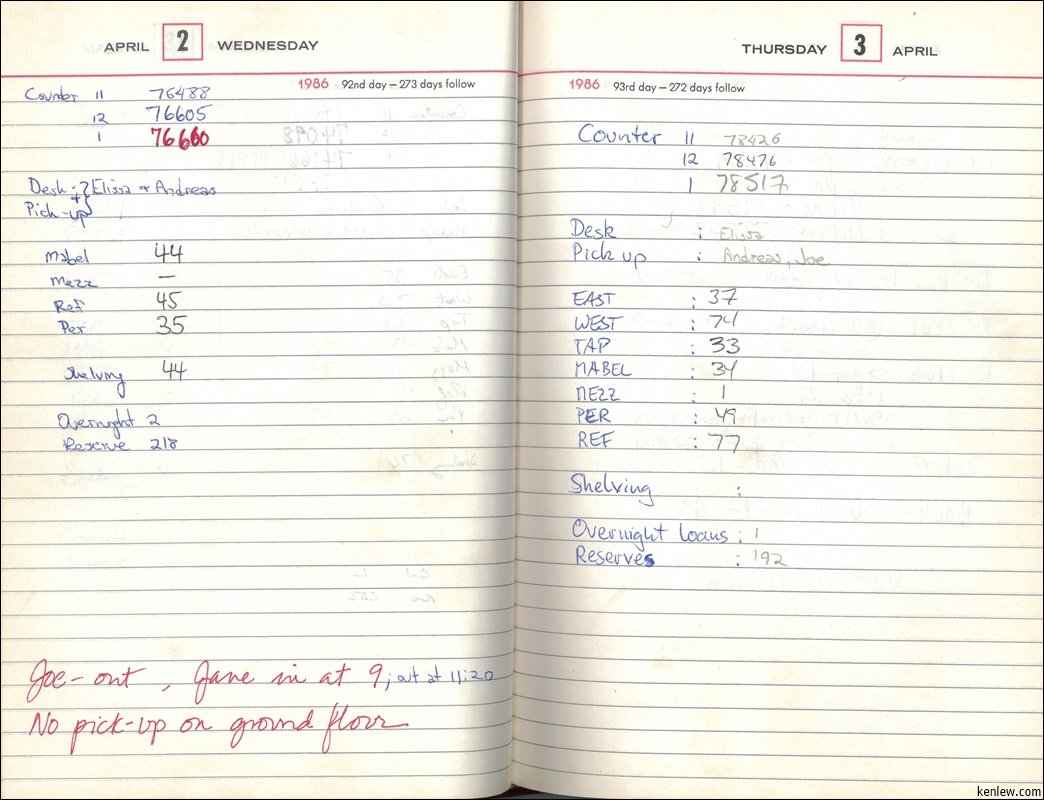 APRIL 2 WEDNESDAY
1986 92nd day – 273 days follow
Counter 11 76488
12 76605
1 76660
Desk : } Elissa + Andreas
+
Pick-up
Mabel 44
Mezz —
Ref 45
Per 35
Shelving 44
Overnight 2
Reserve 218
Joe – out , Jane in at 9; out at 11:20
No pick-up on ground floor
THURSDAY 3 APRIL
1986 93rd day – 272 days follow
Counter 11 78426
12 78476
1 78517
Desk : Elissa
Pick up : Andreas, Joe
EAST : 37
WEST : 74
TAP : 33
MABEL : 34
MEZZ : 1
PER : 49
REF : 77
Shelving :
Overnight loans : 1
Reserves : 192
kenlew.com